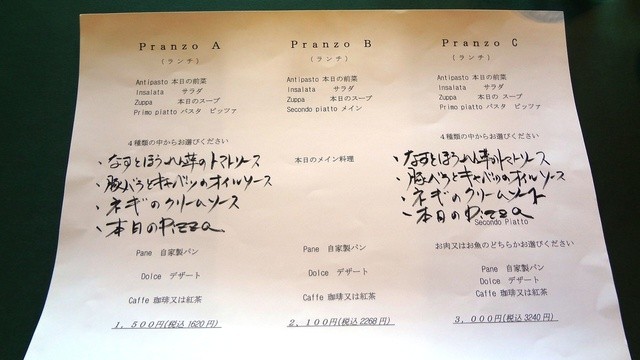 Pranzo A
(ランチ)
Antipasto 本日の前菜
Insalata サラダ
Zuppa 本日のスープ
Primo piatto パスタ ピッツァ
4種類の中からお選びください
・なすとほうれん草のトマトソース
・豚バラとキャベツのオイルソース
・ネギのクリームソース
・本日のPizza
Pane 自家製パン
Dolce デザート
Caffe 珈琲又は紅茶
1,500円(税込1620円)
Pranzo B
(ランチ)
Antipasto 本日の前菜
Insalata サラダ
Zuppa 本日のスープ
Secondo piatto メイン
本日のメイン料理
Pane 自家製パン
Dolce デザート
Caffe 珈琲又は紅茶
2,100円(税込2268円)
Pranzo C
(ランチ)
Antipasto 本日の前菜
Insalata サラダ
Zuppa 本日のスープ
Primo piatto パスタ ピッツァ
4種類の中からお選びください
・なすとほうれん草のトマトソース
・豚バラとキャベツのオイルソース
・ネギのクリームソース
・本日のPizza
Secondo Piatto
お肉又はお魚のどちらかお選びください
Pane 自家製パン
Dolce デザート
Caffe 珈琲又は紅茶
3,000円(税込3240円)